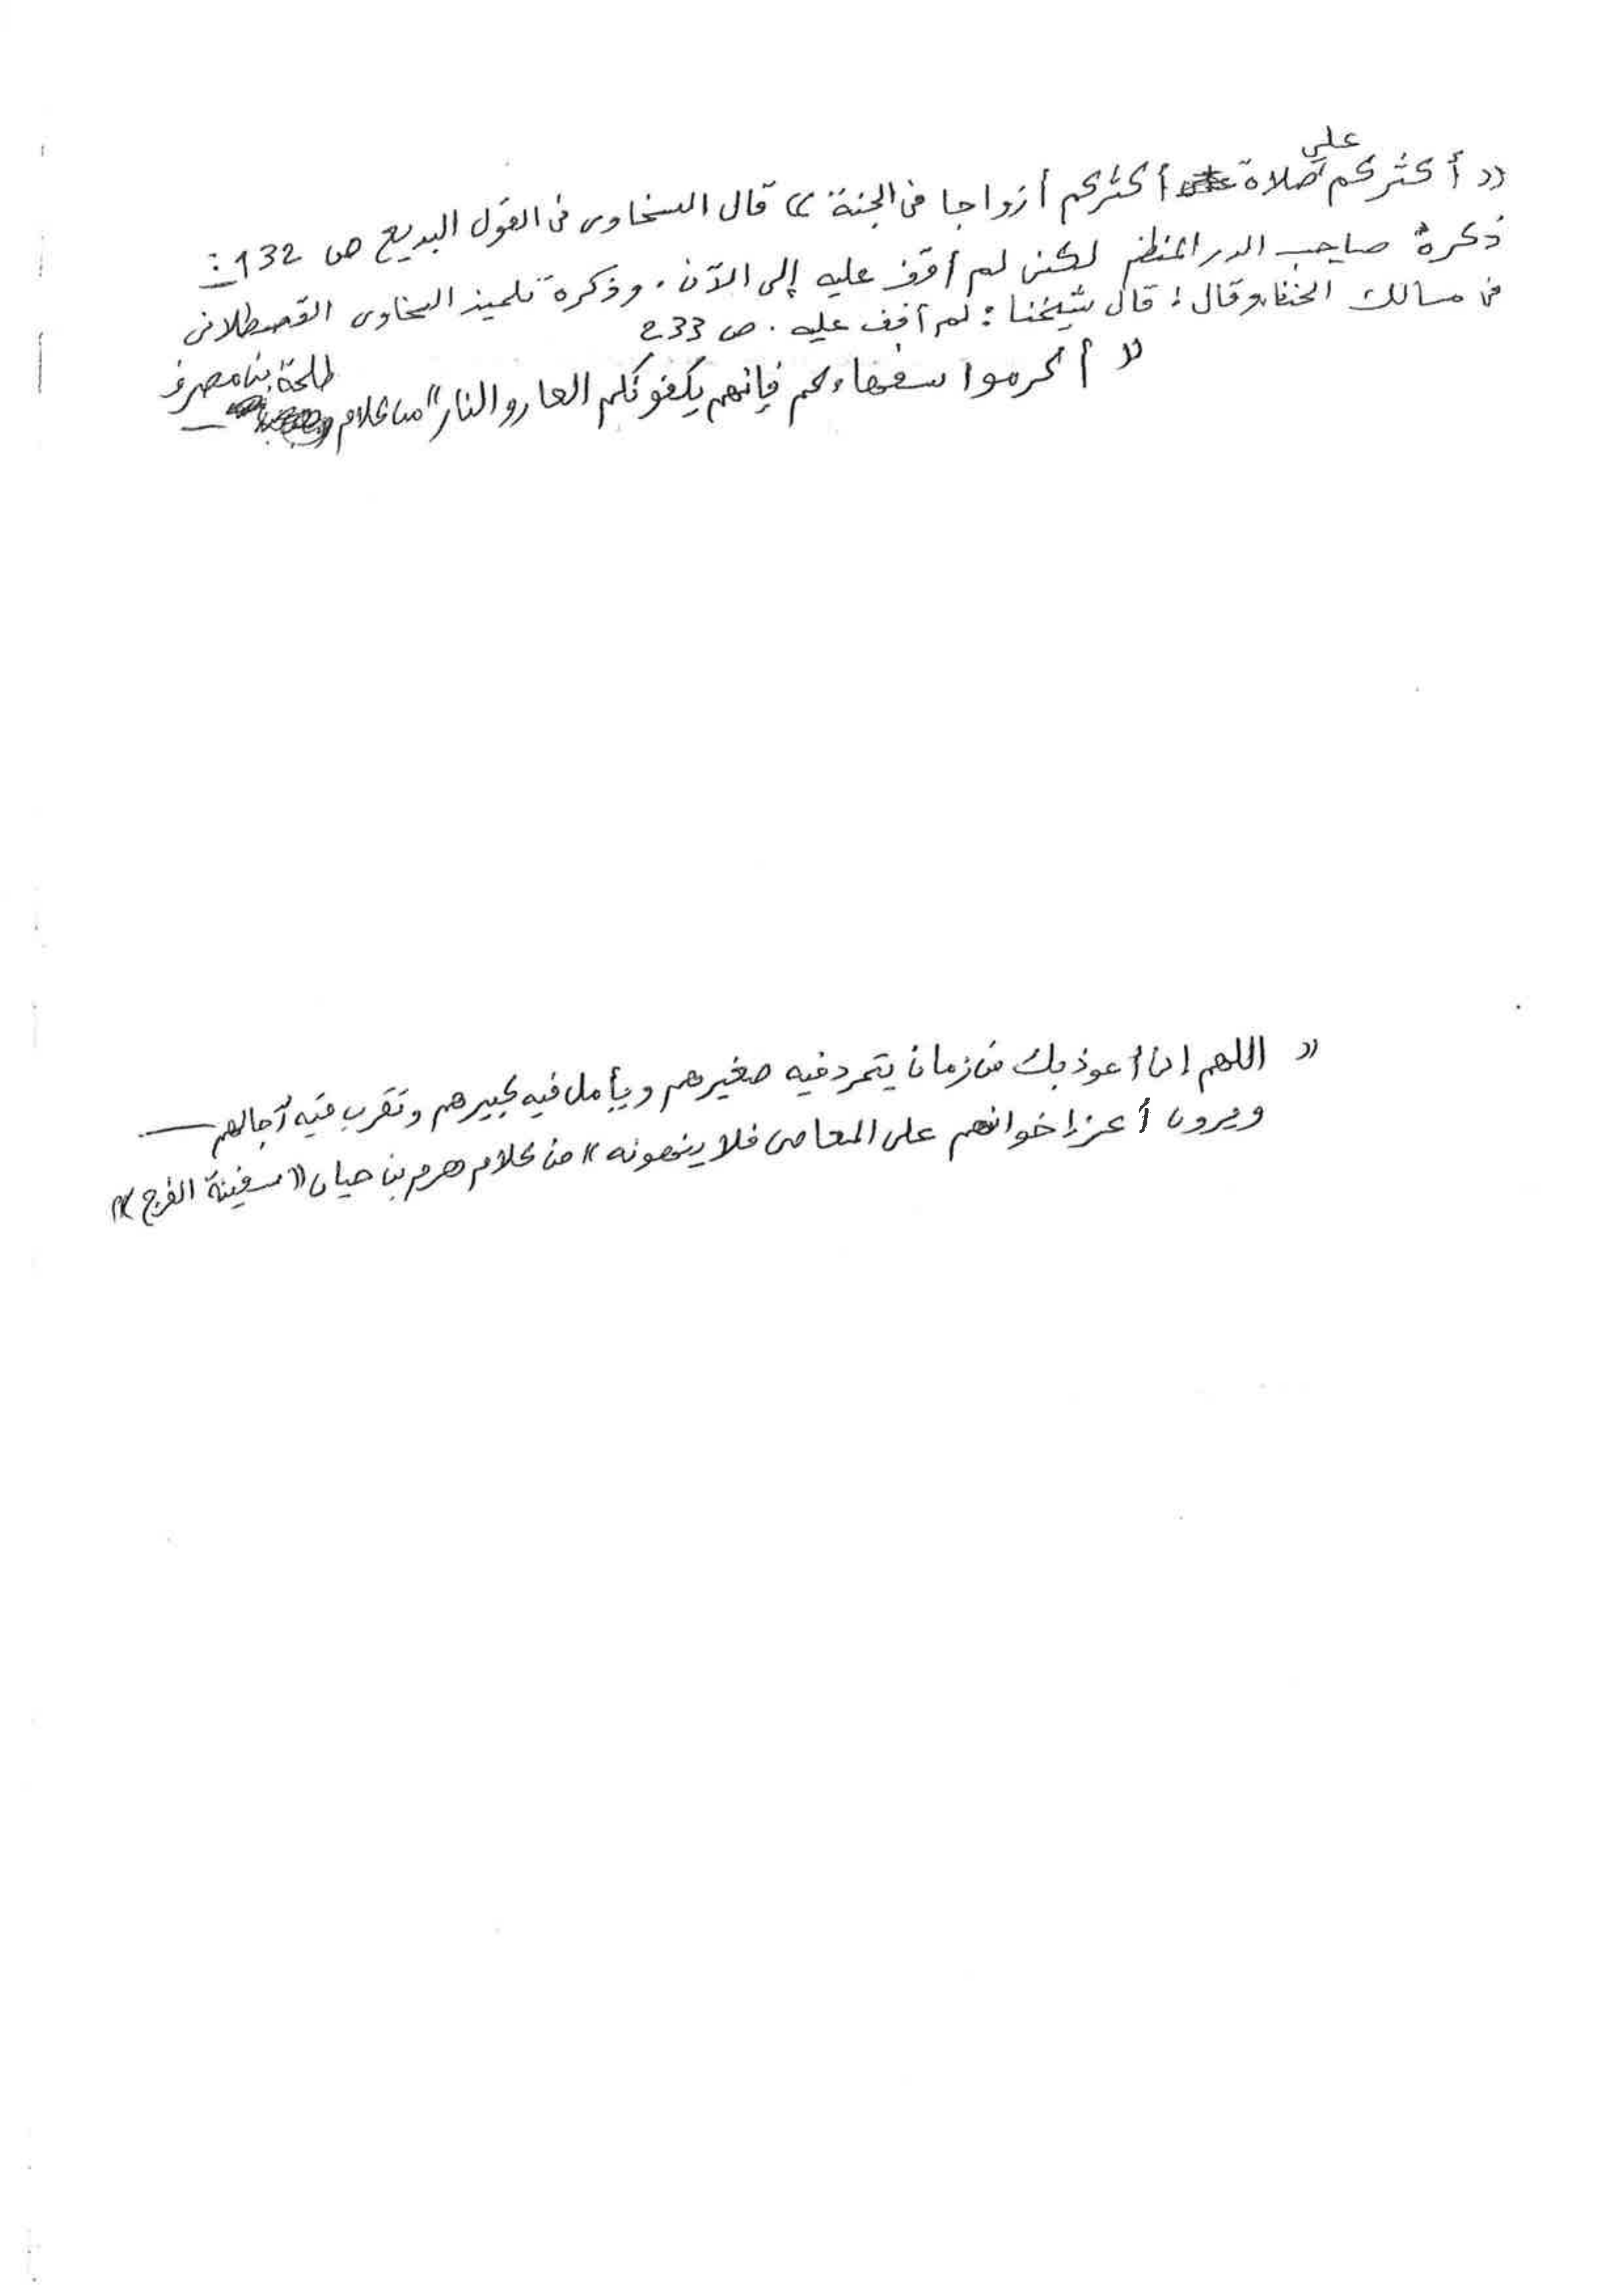 «أكثركم علي صلاة أكثركم أزواجا في الجنة» قال السخاوى فى القول البديع ص 132:
ذكره صاحب الدر المنظم لكنى لم أقف عليه إلى الآن. وذكره تلميذ السخاوى القصطلانى
فى مسالك الحنفا وقال: قال شيخنا: لم أقف عليه. ص 233
«أكرموا سفهاءكم فإنهم يكفونكم العار والنار» من كلام طلحة بن مصرف
«اللهم إنى أعوذ بك من زمان يتمرد فيه صغيرهم ويأمل فيه كبيرهم وتقرب فيه آجالهم
ويرون أعز إخوانهم على المعاصى فلا ينهونه» من كلام هرم بن حيان «سفينة الفرج»